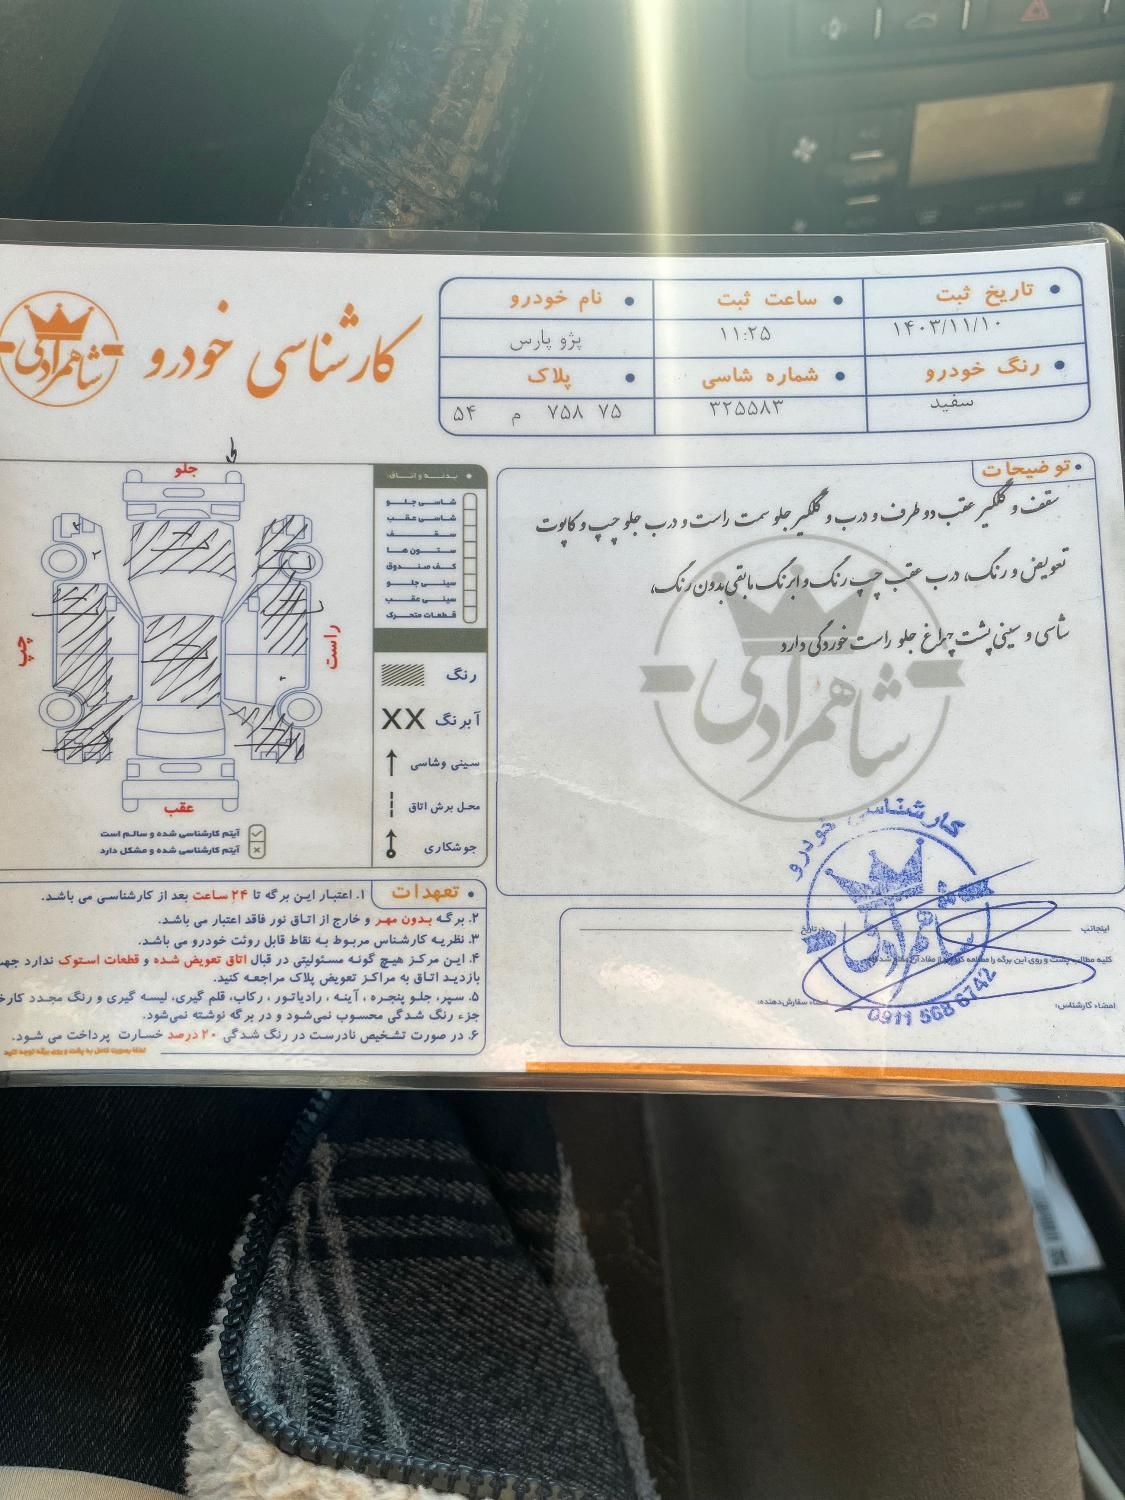 تاریخ ثبت
ساعت ثبت
نام خودرو
۱۴۰۳/۱۱/۱۰
۱۱:۲۵
پژو پارس
رنگ خودرو
شماره شاسی
پلاک
سفید
۳۲۵۵۸۳
۷۵ ۷۵۸ م ۵۴
کارشناسی خودرو
شاهمرادی
توضیحات
سقف و گلگیر عقب دو طرف و درب و گلگیر جلو سمت راست و درب جلو چپ و کاپوت
تعویض و رنگ، درب عقب چپ رنگ و ابرنگ مابقی بدون رنگ،
شاسی و سینی پشت چراغ جلو راست خوردگی دارد
شاهمرادی
بدنه و اتاق:
شاسی جلو
شاسی عقب
سقف
ستون ها
کف صندوق
سینی جلو
سینی عقب
قطعات متحرک
رنگ
آبرنگ XX
سینی وشاسی
محل برش اتاق
جوشکاری
جلو
راست
چپ
عقب
آیتم کارشناسی شده و سالم است
آیتم کارشناسی شده و مشکل دارد
تعهدات
۱. اعتبار این برگه تا ۲۴ ساعت بعد از کارشناسی می باشد.
۲. برگه بدون مهر و خارج از اتاق نور فاقد اعتبار می باشد.
۳. نظریه کارشناس مربوط به نقاط قابل روئت خودرو می باشد.
۴. این مرکز هیچ گونه مسئولیتی در قبال اتاق تعویض شده و قطعات استوک ندارد جهت
بازدید اتاق به مراکز تعویض پلاک مراجعه کنید.
۵. سپر، جلو پنجره، آینه، رادیاتور، رکاب، قلم گیری، لیسه گیری و رنگ مجدد
جزء رنگ شدگی محسوب نمی‌شود و در برگه نوشته نمی‌شود.
۶. در صورت تشخیص نادرست در رنگ شدگی ۲۰ درصد خسارت پرداخت می شود.
لطفا بصورت کامل به پشت و روی برگه توجه کنید
اینجانب
کلیه مطالب پشت و روی این برگه را مطالعه
امضاء کارشناس:
امضاء سفارش‌دهنده:
کارشناسی خودرو
شاهمرادی
0911 568 6742